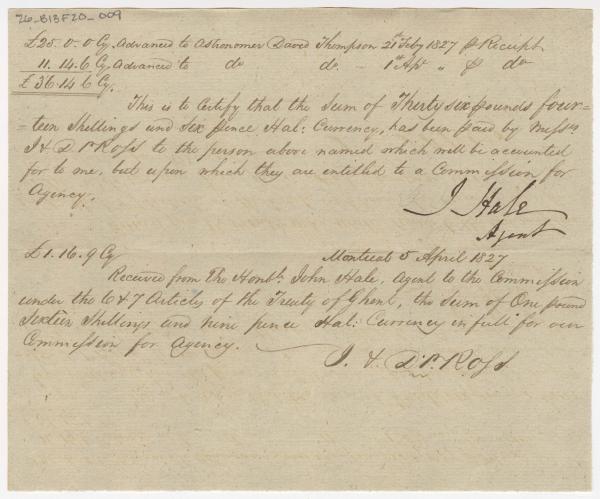 26-B13F20-009
£25.0.0 Cy. Advanced to Astronomer David Thompson 21st Feby 1827 p Receipt
11.14.6 Cy. Advanced to do do. - 1st Apl " p do
£36.14.6 Cy.
This is to Certify that the Sum of Thirty six pounds four-
=teen Shillings and Six pence Hal: Currency, has been paid by Messrs
J & D Ross to the person above named which will be accounted
for to me, but upon which they are entitled to a Commission for
Agency.
J Hale
Agent
£1.16.9 Cy Montreal 5 April 1827
Received from The Honble. John Hale, Agent to the Commission
under the 6 & 7 Articles of the Treaty of Ghent, the Sum of One pound
Sixteen Shillings and nine pence Hal: Currency in full for our
Commission for Agency.
J. & D. Ross